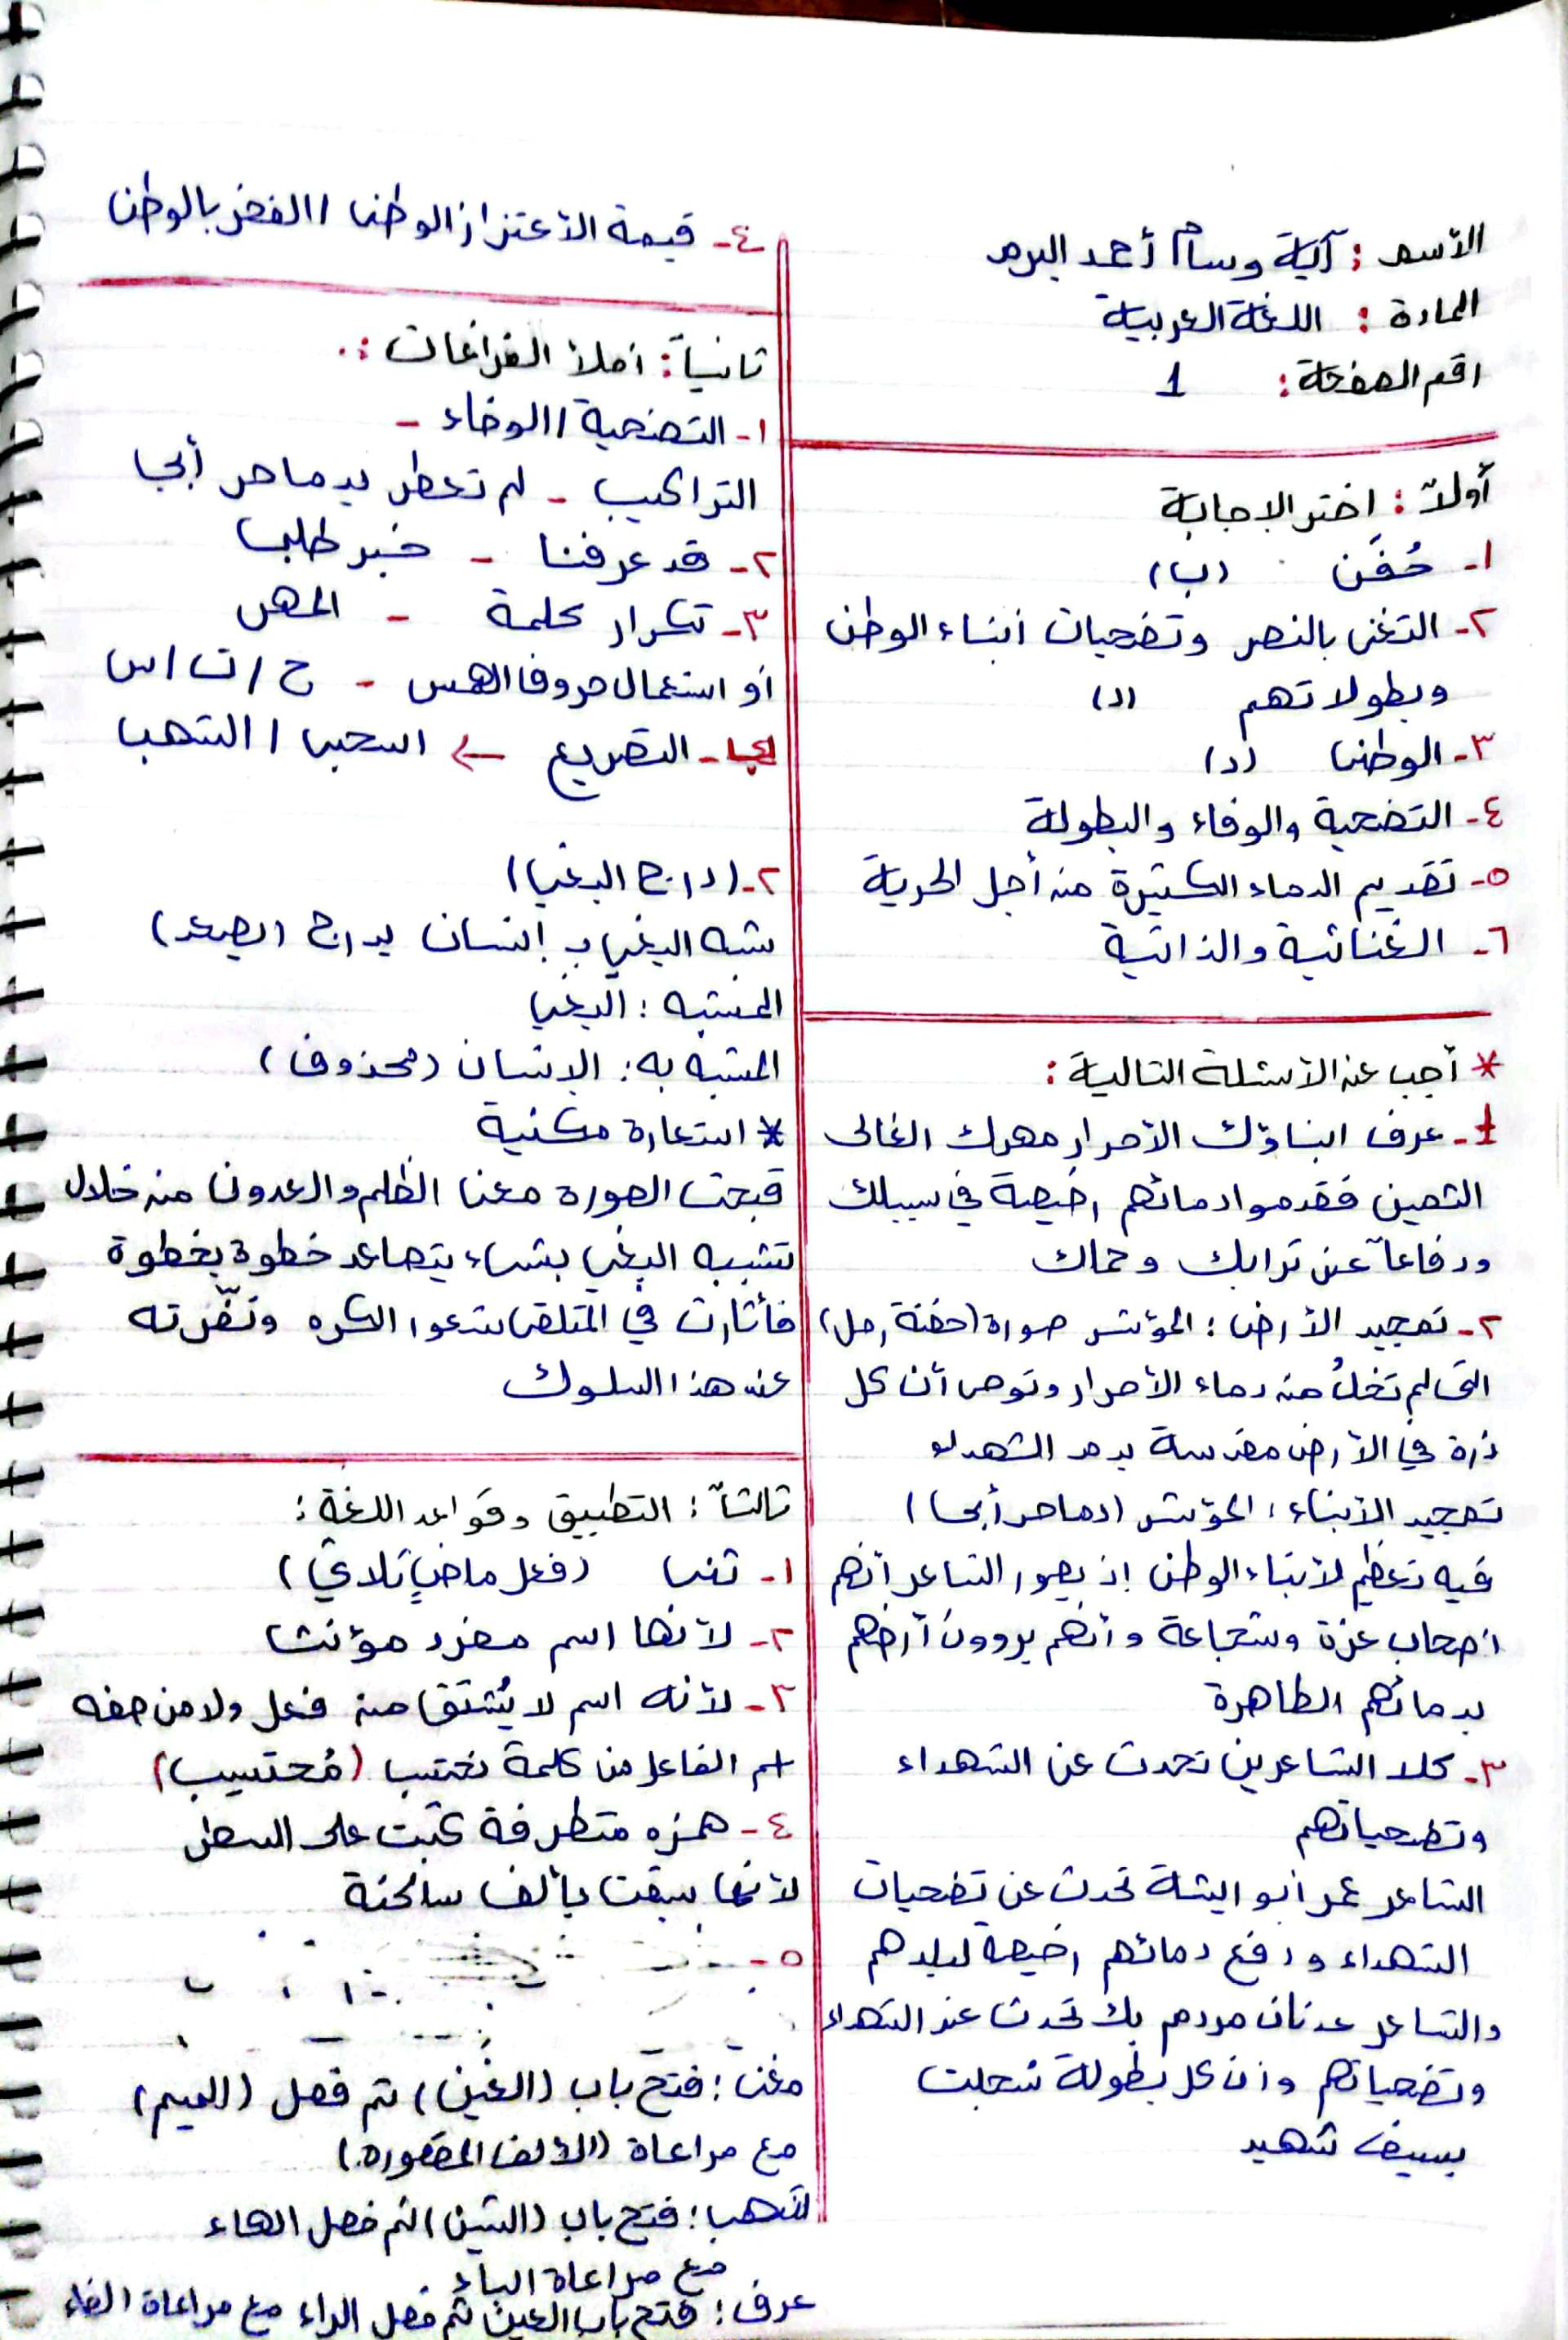 الأسم : آية وسام أحمد البرم
المادة : اللغة العربية
رقم الصفحة : 1
أولاً : اختر الإجابة
١- حُفَن (ب)
٢- التغني بالنصر وتضحيات أبناء الوطن
وبطولاتهم (د)
٣- الوطني (د)
٤- التضحية والوفاء والبطولة
٥- تقديم الدماء الكثيرة من أجل الحرية
٦- الغنائية والذاتية
* أجب عن الأسئلة التالية :
1- عرف ابناؤك الأحرار مهرك الغالي
الثمين فقدموا دمائهم رخيصة في سبيلك
ودفاعاً عن ترابك وحماك
٢- تمجيد الأرض : المؤشر صورة (حفنة رمل)
التي لم تخلُ من دماء الأحرار وتوحي أن كل
ذرة في الأرض مقدسة بدم الشهداء
تمجيد الأبناء : المؤشر (دما حر أبي)
فيه تعظيم لأبناء الوطن إذ يصور الشاعر أنهم
اصحاب عزة وشجاعة وأنهم يروون أرضهم
بدمائهم الطاهرة
٣- كلا الشاعرين تحدث عن الشهداء
وتضحياتهم
الشاعر عمر أبو ريشة تحدث عن تضحيات
الشهداء ودفع دمائهم رخيصة لبلدهم
والشاعر عدنان مردم بك تحدث عن الشهداء
وتضحياتهم وان كل بطولة سُجلت
بسيف شهيد
٤- قيمة الأعتزاز الوطني / الفخر بالوطن
ثانياً : املأ الفراغات :.
١- التضحية / الوفاء -
التراكيب - لم تعطر بدما حر أبي
٢- قد عرفنا - خبر طلبي
٣- تكرار كلمة - المهر
أو استعمال حروف الهمس - ح / ت / س
التصريع ← اسحبي / الشهب
٢- (درج البغي)
شبه البغي بـ إنسان يدرج (يصعد)
المشبه : البغي
المشبه به : الإنسان (محذوف)
* استعارة مكنية
قبحت الصورة معنى الظلم والعدون من خلال
تشبيه البغي بشيء يتصاعد خطوة بخطوة
فأثارت في المتلقي شعور الكره ونفّرته
عن هذا السلوك
ثالثاً : التطبيق وقواعد اللغة :
١- (فعل ماضٍ ثلاثي)
٢- لأنها اسم مفرد مؤنث
٣- لأنه اسم لا يُشتق منه فعل ولا من صفه
اسم الفاعل من كلمة (مُحتسِب)
٤- همزه متطرفة كتبت على السطر
لأنها سبقت بألف ساكنة
٥-
مغنى : فتح باب (الغين) ثم فصل (الميم)
مع مراعاة (الألف المقصورة)
لشهب : فتح باب (الشين) ثم فصل الهاء
مع مراعاة الباء
عرف : فتح باب العين ثم فصل الراء مع مراعاة الفاء